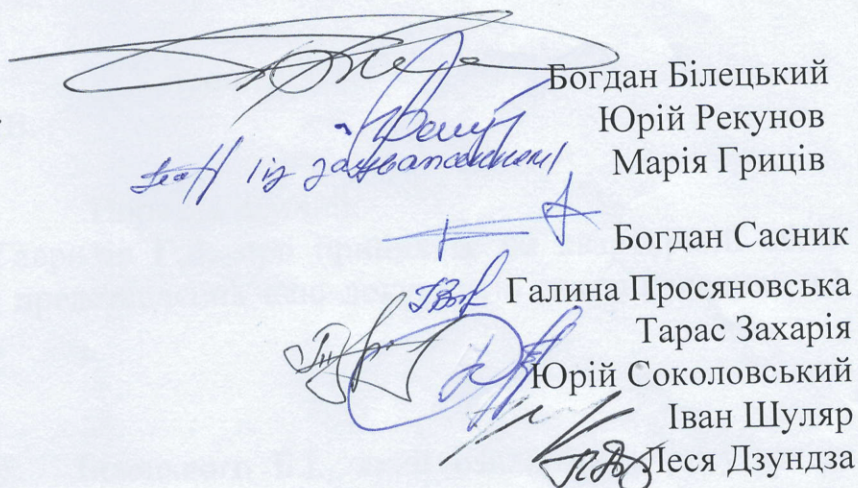 Богдан Білецький
Юрій Рекунов
із зауваженнями
Марія Гриців
Богдан Сасник
Галина Просяновська
Тарас Захарія
Юрій Соколовський
Іван Шуляр
Леся Дзундза